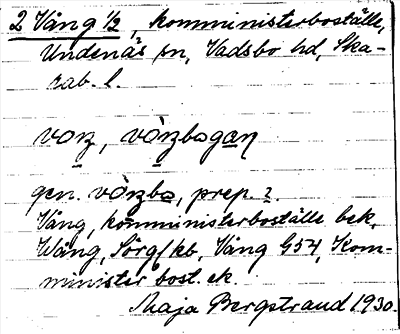 2 Vång ½, komministerboställe,
Undenäs sn, Vadsbo hd, Ska-
rab. l.
gen. prep. 2.
Vång, komministerboställe bek,
Wång, Sörg/kb, Vång G54, Kom-
minister bost. ek
Maja Bergstrand 1930.